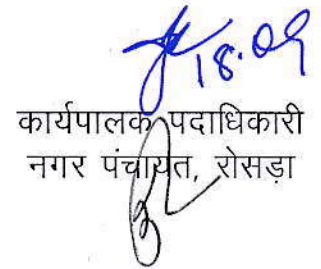 18.09
कार्यपालक पदाधिकारी
नगर पंचायत, रोसड़ा